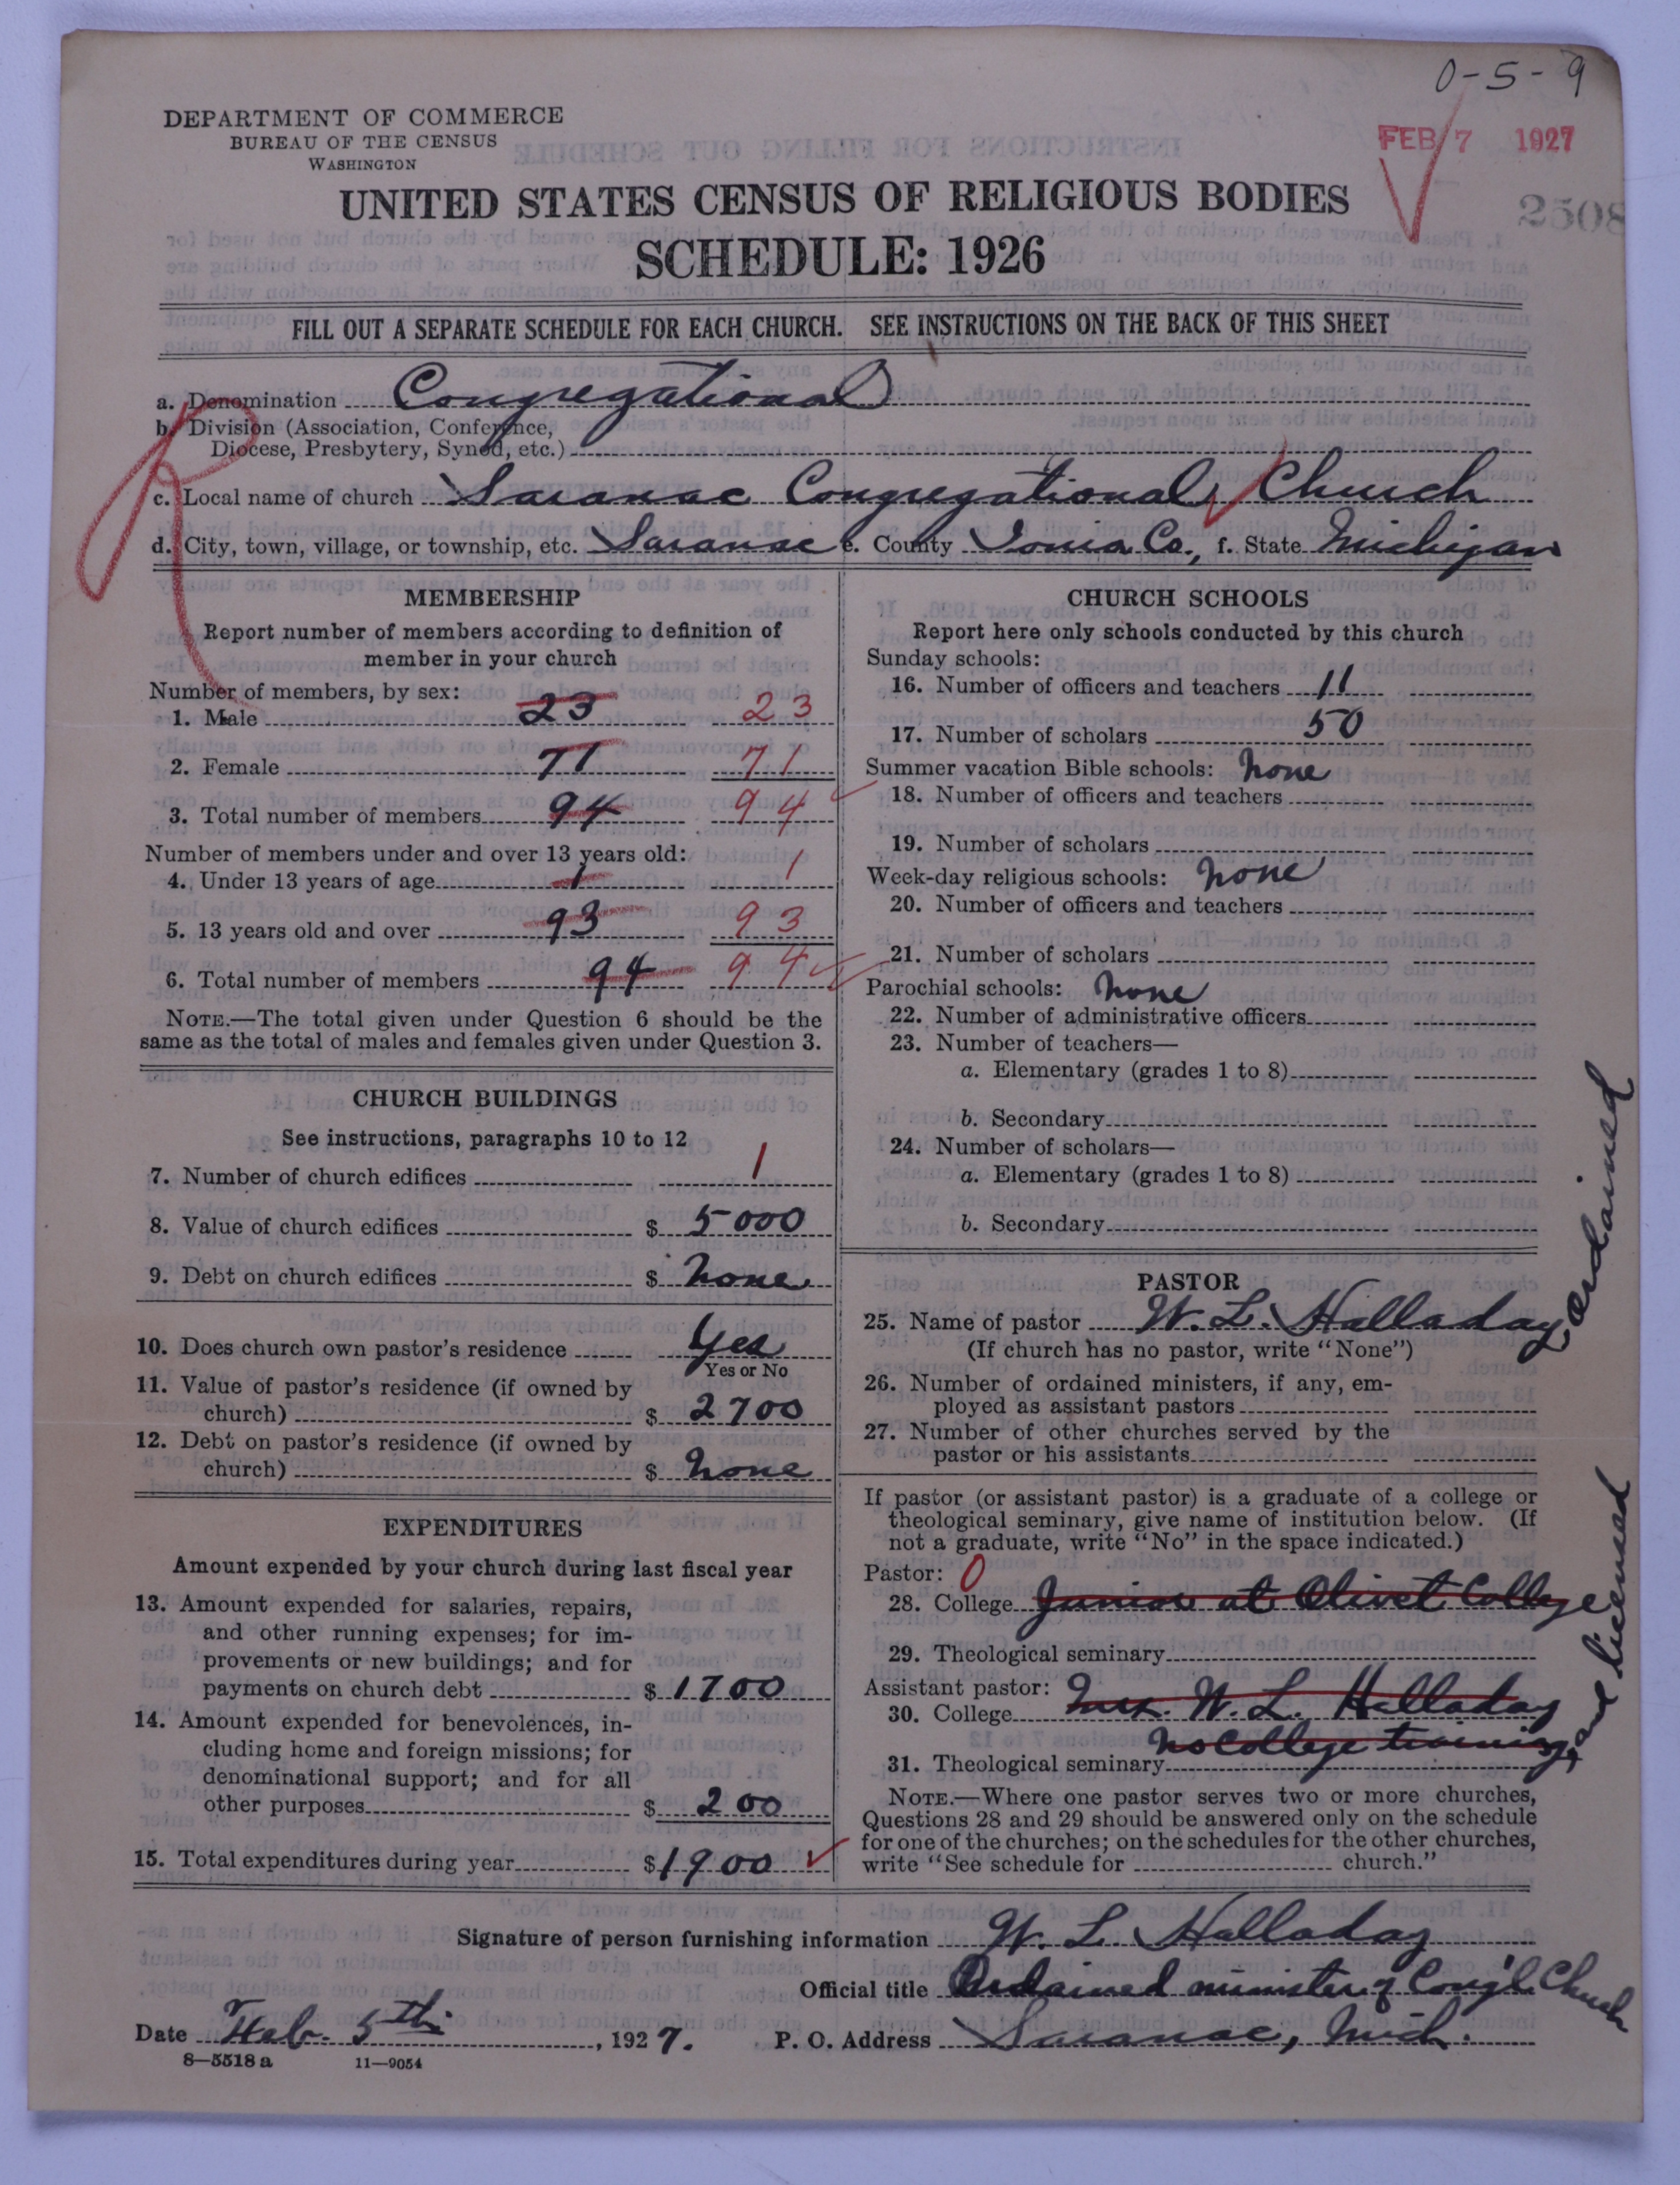 0-5-9
DEPARTMENT OF COMMERCE
BUREAU OF THE CENSUS
WASHINGTON
FEB 7 1927
2508
UNITED STATES CENSUS OF RELIGIOUS BODIES
SCHEDULE: 1926
FILL OUT A SEPARATE SCHEDULE FOR EACH CHURCH. SEE INSTRUCTIONS ON THE BACK OF THIS SHEET
a. Denomination Congregational
b. Division (Association, Conference,
Diocese, Presbytery, Synod, etc.)
c. Local name of church Saranac Congregational Church
d. City, town, village, or township, etc. Saranac e. County Ionia Co., f. State Michigan
MEMBERSHIP
Report number of members according to definition of
member in your church
Number of members, by sex:
1. Male 23 23
2. Female 71 71
3. Total number of members 94 94
Number of members under and over 13 years old:
4. Under 13 years of age 1 1
5. 13 years old and over 93 93
6. Total number of members 94 94
NOTE.—The total given under Question 6 should be the
same as the total of males and females given under Question 3.
CHURCH BUILDINGS
See instructions, paragraphs 10 to 12
7. Number of church edifices 1
8. Value of church edifices $ 5000
9. Debt on church edifices $ None
10. Does church own pastor's residence Yes
Yes or No
11. Value of pastor's residence (if owned by
church) $ 2700
12. Debt on pastor's residence (if owned by
church) $ None
EXPENDITURES
Amount expended by your church during last fiscal year
13. Amount expended for salaries, repairs,
and other running expenses; for im-
provements or new buildings; and for
payments on church debt $ 1700
14. Amount expended for benevolences, in-
cluding home and foreign missions; for
denominational support; and for all
other purposes $ 200
15. Total expenditures during year $ 1900
CHURCH SCHOOLS
Report here only schools conducted by this church
Sunday schools:
16. Number of officers and teachers 11
17. Number of scholars 50
Summer vacation Bible schools: None
18. Number of officers and teachers
19. Number of scholars
Week-day religious schools: None
20. Number of officers and teachers
21. Number of scholars
Parochial schools: None
22. Number of administrative officers
23. Number of teachers—
a. Elementary (grades 1 to 8)
b. Secondary
24. Number of scholars—
a. Elementary (grades 1 to 8)
b. Secondary
PASTOR
25. Name of pastor W. L. Halladay ordained
(If church has no pastor, write "None")
26. Number of ordained ministers, if any, em-
ployed as assistant pastors
27. Number of other churches served by the
pastor or his assistants
If pastor (or assistant pastor) is a graduate of a college or
theological seminary, give name of institution below. (If
not a graduate, write "No" in the space indicated.)
Pastor: 0
28. College Junior at Olivet College
29. Theological seminary
Assistant pastor:
30. College Mrs. W. L. Halladay
No College training, and licensed
31. Theological seminary
NOTE.—Where one pastor serves two or more churches,
Questions 28 and 29 should be answered only on the schedule
for one of the churches; on the schedules for the other churches,
write "See schedule for church."
Signature of person furnishing information W. L. Halladay
Official title Ordained minister of Cong'l. Church
Date Feb. 5th, 1927. P. O. Address Saranac, Mich.
8—5518 a 11—9054